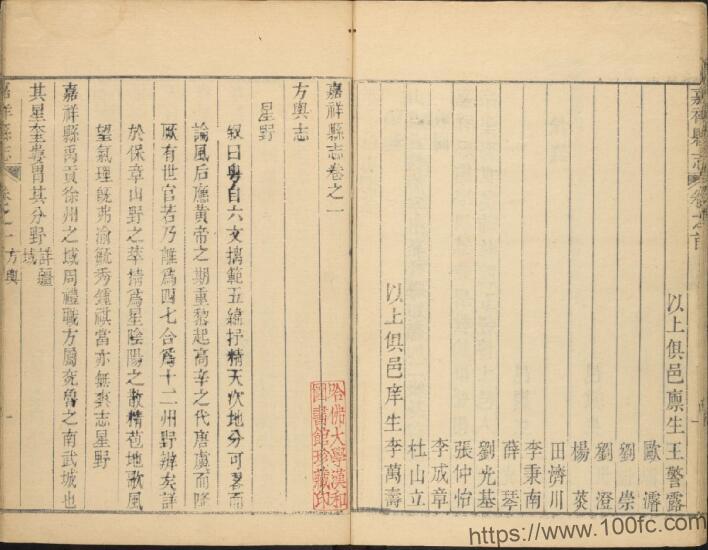 嘉祥縣志 卷之首
以上俱邑廩生王警露
歐濬
劉崇
劉澄
楊
田濟川
李秉南
薛琴
劉光基
張仲怡
李成章
杜山立
以上俱邑庠生李萬壽
嘉祥縣志卷之一
方輿志
星野
叙曰粤自六文摛範五緯抒精天次地分可畧而
論風后應黃帝之期重黎起高辛之代唐虞而降
厥有世官若乃離爲四七合爲十二州野辨矣詳
於保章山野之萃猜爲星陰陽之散精苞地歌風
望氣理旣弗渝毓秀鍾祺當亦無爽志星野
嘉祥縣禹貢徐州之域周禮職方屬兗魯之南武城也
其星奎婁胃其分野詳疆域
嘉祥縣志 卷之一 方輿 一
哈佛大學漢和
圖書館珍藏印
https://www.100fc.com